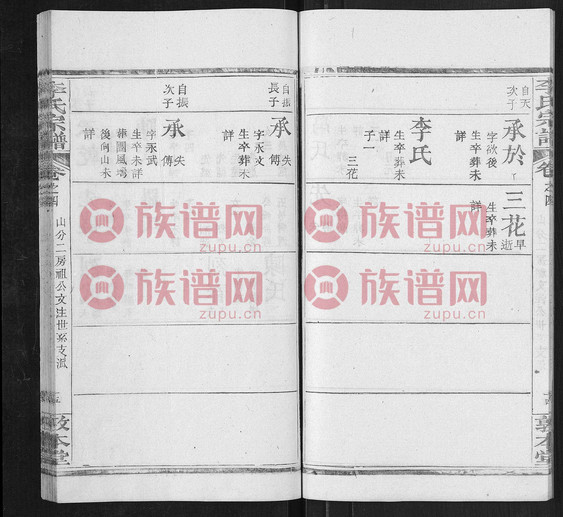 李氏宗譜
卷之四
敦本堂
自天
次子
承於
字欲後
生卒葬未
詳
李氏
生卒葬未
詳
子一
三花
三花
早
逝
生卒葬未
詳
自振
長子
承
失
傳
字永文
生卒葬未
詳
自振
次子
承
失
傳
字永武
生卒未詳
葬團風塆
後向山未
詳
李氏宗譜
卷之四
山分二房祖公文生世系支派
敦本堂
族谱网
zupu.cn
族谱网
zupu.cn
族谱网
zupu.cn
族谱网
zupu.cn